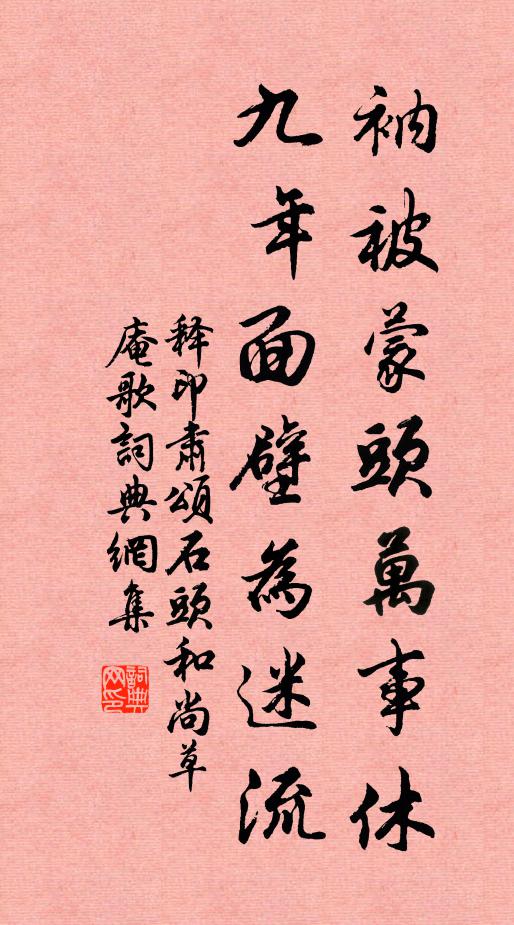 衲被蒙頭萬事休
九年面壁為迷流
释印肃頌石頭和尚草
庵歌詞典網集
詞典網印